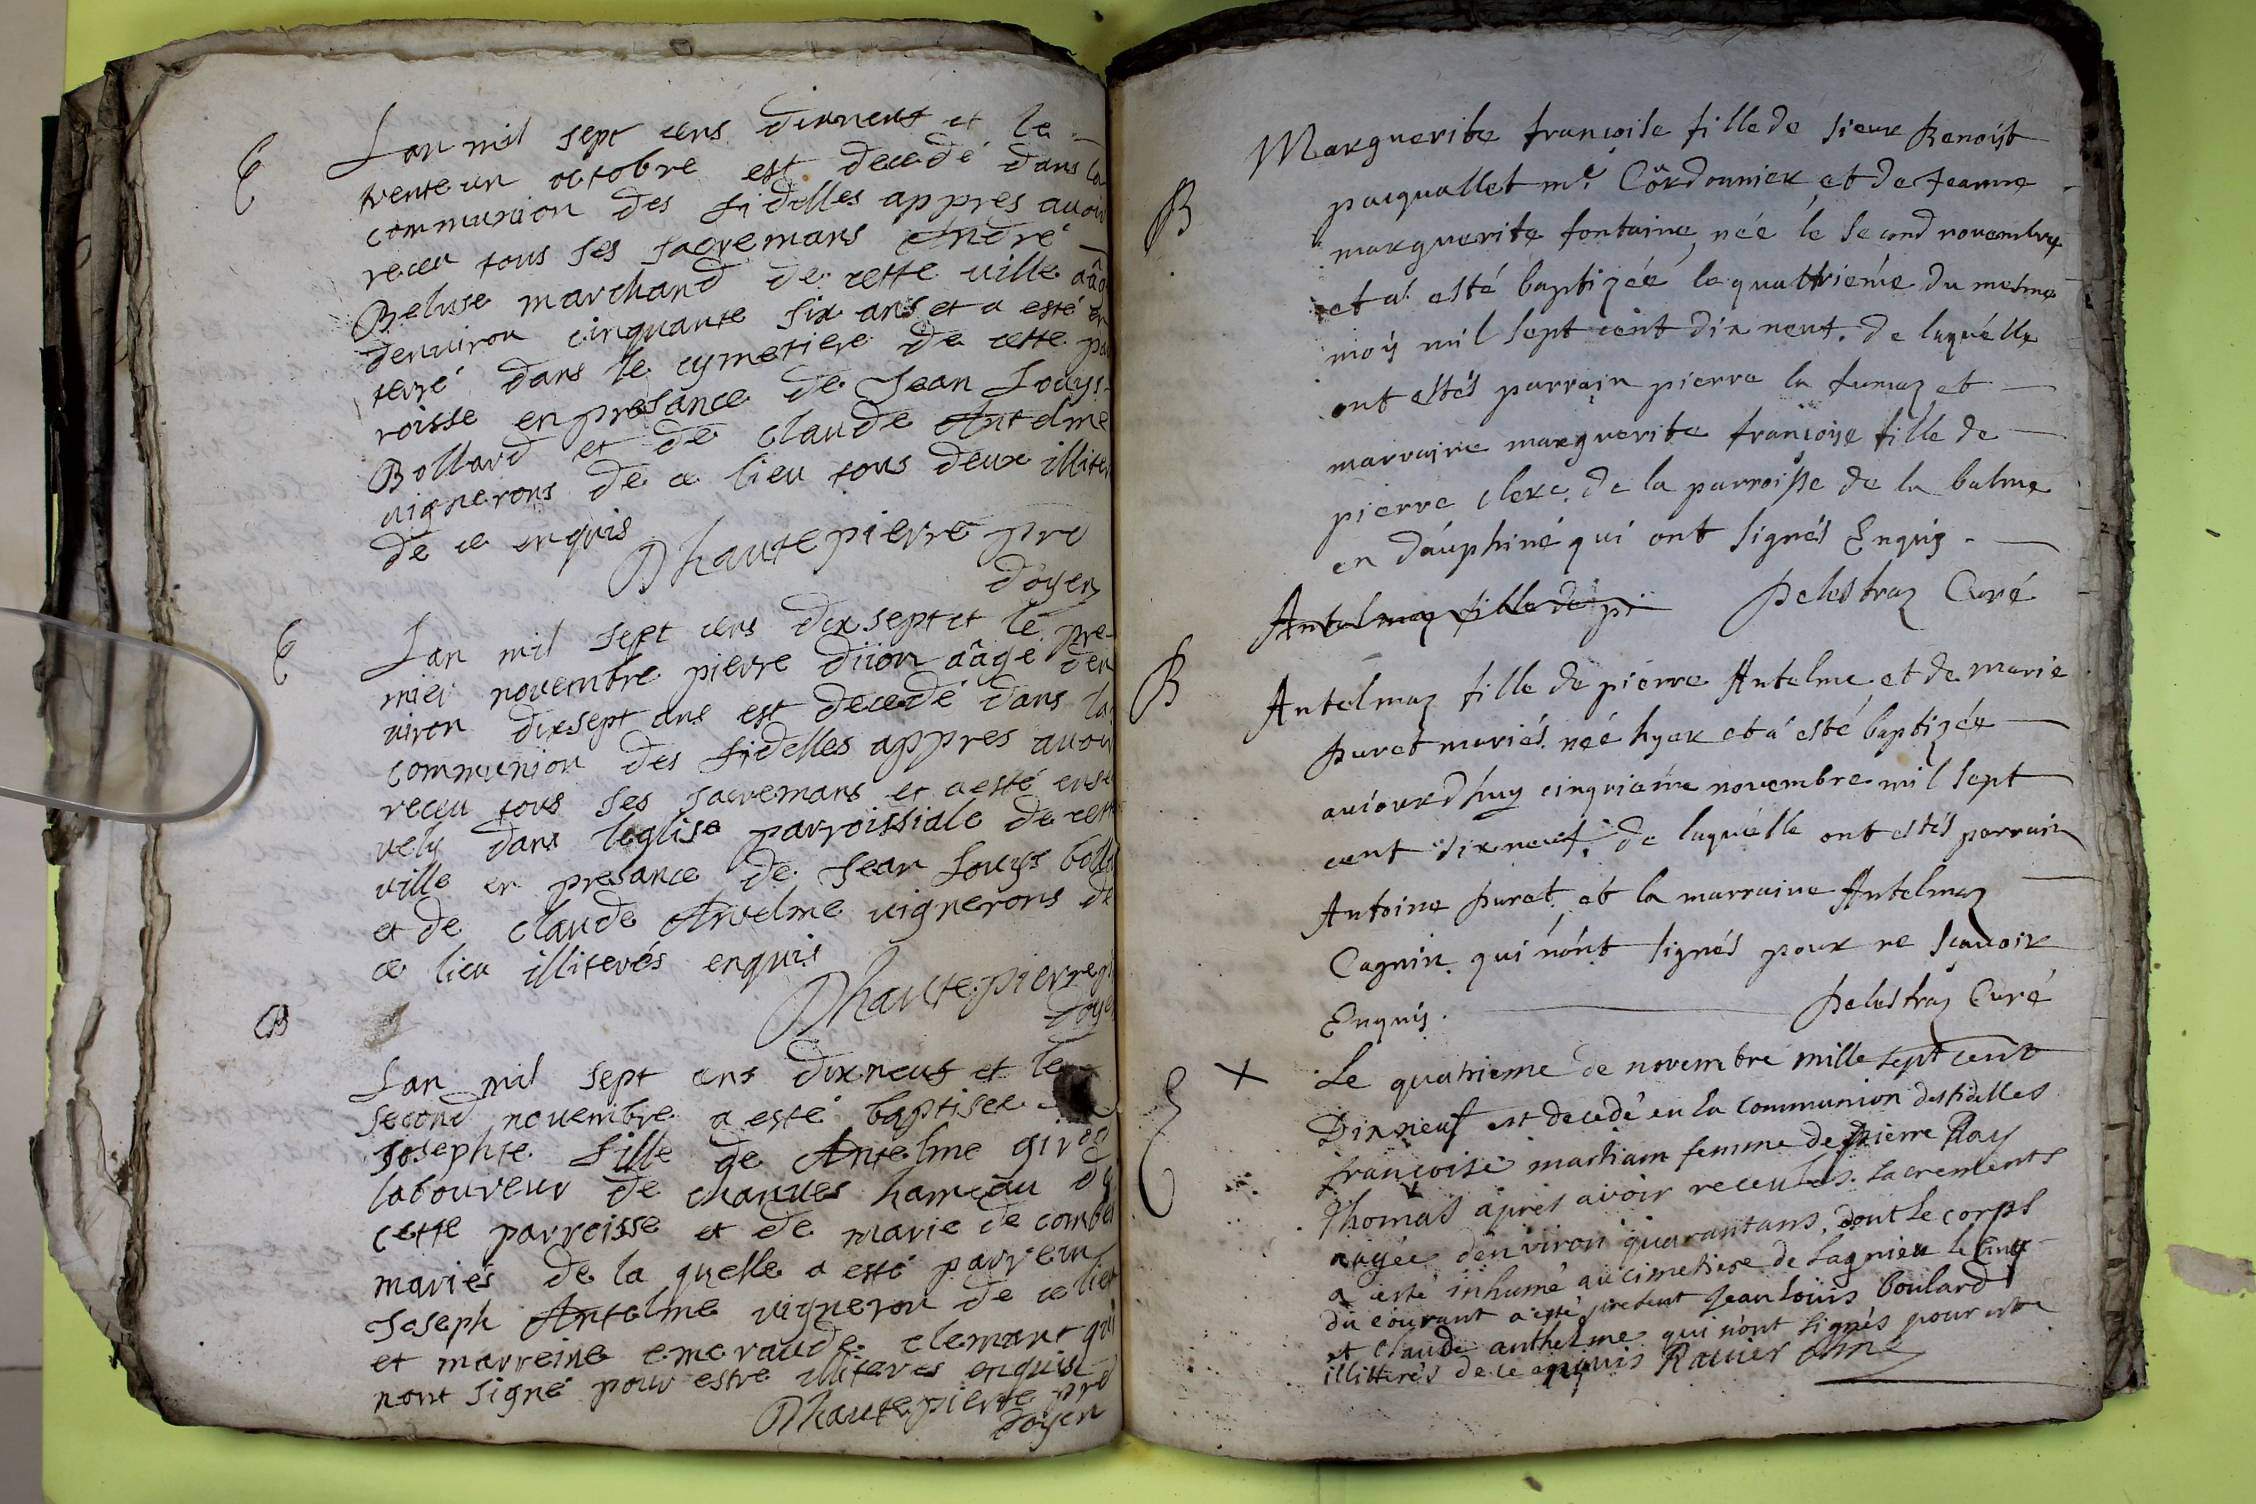 E
Lan mil sept cens dixneuf et le
trente un octobre est decedé dans la
communion des fidelles appres avoir
receu tous ses sacremans André
Beluse marchand de cette ville aâgé
denviron cinquante six ans et a esté en
terré dans le cymetiere de cette pa
roisse en presance de Jean Louys
Bollard et de claude Antelme
vignerons de ce lieu tous deux illiterés
de ce enquis
Dhautepierre pre
doyen
E
Lan mil sept cens dixsept et le pre-
mier novembre pierre diion aâgé den
viron dixsept ans est decedé dans la
communion des fidelles appres avoir
receu tous ses sacremans et a esté ense
vely dans leglise parroissiale de cette
ville en presance de Jean Louys boll
et de claude Antelme vignerons de
ce lieu illiterés enquis
Dhautepierre p
doye
B
Lan mil sept cens dixneuf et le
second novembre a esté baptisee
Josephte fille de Antelme giro
laboureur de chanues hameau de
cette parroisse et de marie de combe
mariés de la quelle a esté parrein
Joseph Antelme vigneron de ce lieu
et marreine emeraude clemant qui
nont signé pour estre illiterés enquis
Dhautepierre pre
doyen
B
Marguerite françoise fille de sieur Benoist
pasquallet me. Cordonnier et de Jeanne
marguerite fontaine, née le second novembre
et a esté baptizée le quattriéme du mesme
mois mil sept cent dix neuf. de laquélle
ont estés parrain pierre la fumaz et
marraine marguerite françoise fille de
pierre clerc. de la parroisse de la balme
en dáuphiné qui ont signés Enquis.
Antelmaz fille de pi Pelestraz Curé
B
Antelmaz fille de pierre Antelme et de marie
Puret mariés. née hyer et a esté baptizée
auiourdhuy cinquiéme novembre mil sept
cent dixneuf, de laquélle ont estés parrain
Antoine Puret et la marraine Antelmaz
Cagnin. qui n'ont signés pour ne sçavoir
Enquis. Pelestraz Curé
E + Le quatrieme de novembre mille sept cent
Dixneuf est decedé en la communion des fidelles
françoise martiam femme de pierre Ray
Thomas apres avoir receu les sacrements
aagée denviron quarantans, dont le corps
a esté inhumé au cimetiere de Lagnieu le cinq
du courant a esté present Jean Loüis boulard
et Claude anthelme qui n'ont signés pour estre
illitterés de ce enquis Ravier